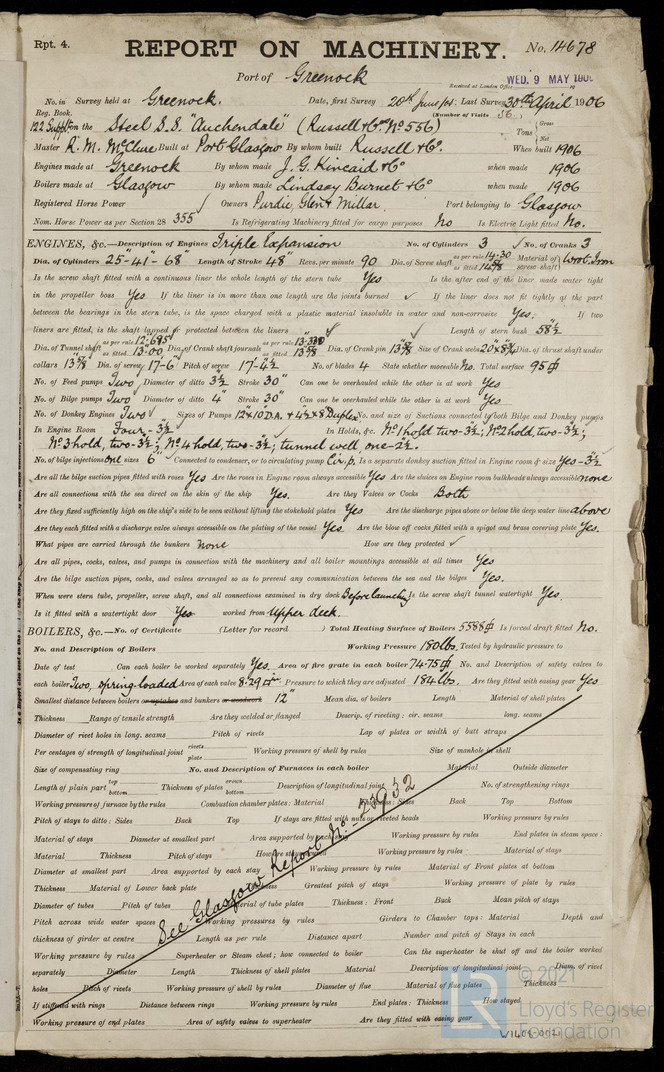 Rpt. 4. REPORT ON MACHINERY. No. 14678
Port of Greenock
Received at London Office WED. 9 MAY 190
No. in Survey held at Greenock. Date, first Survey 20th June/05: Last Survey 30th April 1906
Reg. Book. (Number of Visits 56
122 Suppt on the Steel S.S. "Auchendale" (Russell & Co. No 556) Tons { Gross Net
Master R. M. McClure Built at Port Glasgow By whom built Russell & Co. When built 1906
Engines made at Greenock By whom made J. G. Kincaid & Co when made 1906
Boilers made at Glasgow By whom made Lindsay Burnet & Co when made 1906
Registered Horse Power Owners Purdie, Glen & Millar. Port belonging to Glasgow
Nom. Horse Power as per Section 28 355 Is Refrigerating Machinery fitted for cargo purposes No Is Electric Light fitted No.
ENGINES, &c.—Description of Engines Triple Expansion No. of Cylinders 3 No. of Cranks 3
Dia. of Cylinders 25"-41"-68" Length of Stroke 48" Revs. per minute 90 Dia. of Screw shaft as per rule 14.30 as fitted 14 7/8 Material of screw shaft Wrot-Iron
Is the screw shaft fitted with a continuous liner the whole length of the stern tube Yes Is the after end of the liner made water tight
in the propeller boss Yes If the liner is in more than one length are the joints burned ✓ If the liner does not fit tightly at the part
between the bearings in the stern tube, is the space charged with a plastic material insoluble in water and non-corrosive Yes. If two
liners are fitted, is the shaft lapped or protected between the liners ✓ Length of stern bush 58½"
Dia. of Tunnel shaft as per rule 12.695" as fitted 13.00 Dia. of Crank shaft journals as per rule 13.330" as fitted 13 5/8 Dia. of Crank pin 13 5/8" Size of Crank webs Dia. of thrust shaft under
collars 13 5/8" Dia. of screw 17'-6" Pitch of screw 17'-4½" No. of blades 4 State whether moveable No. Total surface 95 ⌽
No. of Feed pumps Two Diameter of ditto 3½" Stroke 30" Can one be overhauled while the other is at work Yes
No. of Bilge pumps Two Diameter of ditto 4" Stroke 30" Can one be overhauled while the other is at work Yes
No. of Donkey Engines Two Sizes of Pumps 12"x10" D.A. + 4½"x8" Duplex. No. and size of Suctions connected to both Bilge and Donkey pumps
In Engine Room Four - 3½" In Holds, &c. No 1 hold two-3½"; No 2 hold, two-3½";
No 3 hold, two-3½"; No 4 hold, two-3½"; tunnel well, one-2½".
No. of bilge injections one sizes 6" Connected to condenser, or to circulating pump Cir. p. Is a separate donkey suction fitted in Engine room & size Yes-3½"
Are all the bilge suction pipes fitted with roses Yes Are the roses in Engine room always accessible Yes Are the sluices on Engine room bulkheads always accessible none
Are all connections with the sea direct on the skin of the ship Yes. Are they Valves or Cocks Both
Are they fixed sufficiently high on the ship's side to be seen without lifting the stokehold plates Yes Are the discharge pipes above or below the deep water line above
Are they each fitted with a discharge valve always accessible on the plating of the vessel Yes. Are the blow off cocks fitted with a spigot and brass covering plate Yes.
What pipes are carried through the bunkers none How are they protected ✓
Are all pipes, cocks, valves, and pumps in connection with the machinery and all boiler mountings accessible at all times Yes
Are the bilge suction pipes, cocks, and valves arranged so as to prevent any communication between the sea and the bilges Yes.
When were stern tube, propeller, screw shaft, and all connections examined in dry dock Before launching Is the screw shaft tunnel watertight Yes.
Is it fitted with a watertight door Yes worked from Upper deck.
BOILERS, &c.—No. of Certificate (Letter for record ) Total Heating Surface of Boilers 5588 ⌽ Is forced draft fitted No.
No. and Description of Boilers Working Pressure 180 lbs. Tested by hydraulic pressure to
Date of test Can each boiler be worked separately Yes. Area of fire grate in each boiler 74.75 ⌽ No. and Description of safety valves to
each boiler Two, spring-loaded Area of each valve 8.29 □" Pressure to which they are adjusted 184 lbs. Are they fitted with easing gear Yes
Smallest distance between boilers or uptakes and bunkers or woodwork 12" Mean dia. of boilers Length Material of shell plates
Thickness Range of tensile strength Are they welded or flanged Descrip. of riveting: cir. seams long. seams
Diameter of rivet holes in long. seams Pitch of rivets Lap of plates or width of butt straps
Per centages of strength of longitudinal joint rivets plate Working pressure of shell by rules Size of manhole in shell
Size of compensating ring No. and Description of Furnaces in each boiler Material Outside diameter
Length of plain part top bottom Thickness of plates crown bottom Description of longitudinal joint No. of strengthening rings
Working pressure of furnace by the rules Combustion chamber plates: Material Thickness: Sides Back Top Bottom
Pitch of stays to ditto: Sides Back Top If stays are fitted with nuts or riveted heads Working pressure by rules
Material of stays Diameter at smallest part Area supported by each stay Working pressure by rules End plates in steam space:
Material Thickness Pitch of stays How are stays secured Working pressure by rules Material of stays
Diameter at smallest part Area supported by each stay Working pressure by rules Material of Front plates at bottom
Thickness Material of Lower back plate Thickness Greatest pitch of stays Working pressure of plate by rules
Diameter of tubes Pitch of tubes Material of tube plates Thickness: Front Back Mean pitch of stays
Pitch across wide water spaces Working pressures by rules Girders to Chamber tops: Material Depth and
thickness of girder at centre Length as per rule Distance apart Number and pitch of Stays in each
Working pressure by rules Superheater or Steam chest; how connected to boiler Can the superheater be shut off and the boiler worked
separately Diameter Length Thickness of shell plates Material Description of longitudinal joint Diam. of rivet
holes Pitch of rivets Working pressure of shell by rules Diameter of flue Material of flue plates Thickness
If stiffened with rings Distance between rings Working pressure by rules End plates: Thickness How stayed
Working pressure of end plates Area of safety valves to superheater Are they fitted with easing gear
See Glasgow Report No. 25932
© 2021
LR Lloyd's Register
Foundation